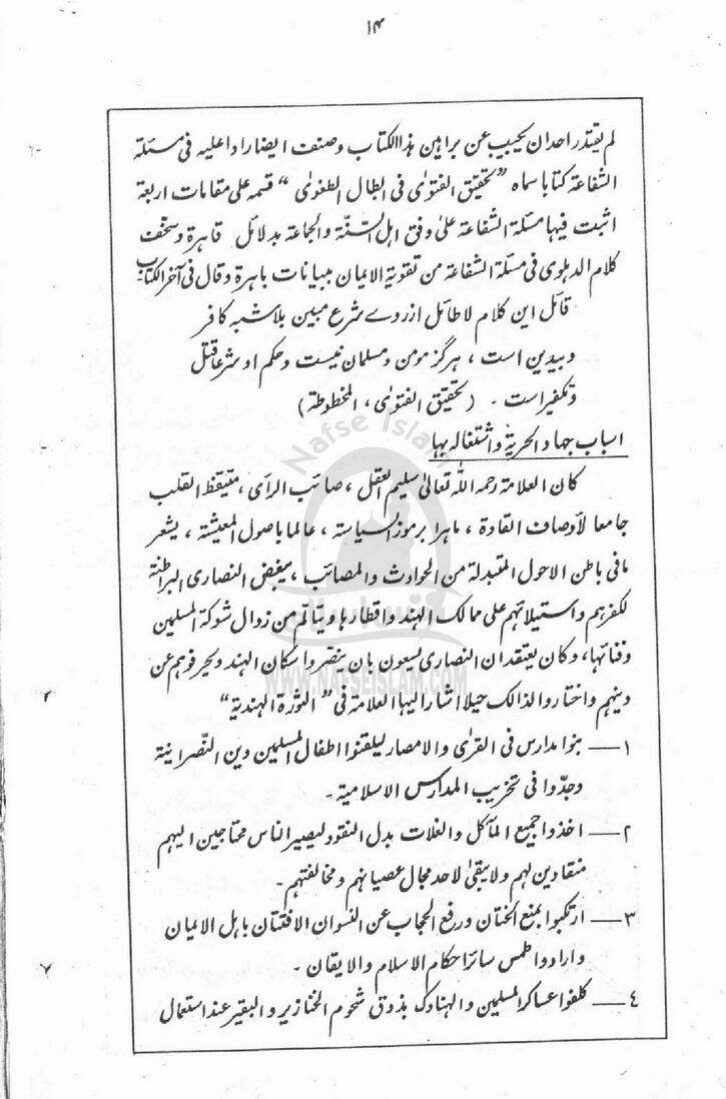 ۱۴
لم يقتدر احد ان يجيب عن براهين هذا الكتاب وصنف ايضا رادا عليه فى مسئلة
الشفاعة كتابا سماه "تحقيق الفتوىٰ فى ابطال الطغوىٰ" قسمه على مقامات اربعة
اثبت فيها مسئلة الشفاعة علىٰ وفق اهل السّنّة والجماعة بدلائل قاهرة وسخّف
كلام الدهلوى فى مسئلة الشفاعة من تقوية الايمان ببيانات باهرة وقال فى آخر الكتاب:
قائل این کلام لا طائل از روے شرع مبین بلا شبہ کافر
و بیدین است ، ہرگز مومن و مسلمان نیست و حکم او شرعا قتل
و تکفیر است ۔ (تحقیق الفتوىٰ ، المخطوطة)
اسباب جهاد الحرية واشتغاله بها
كان العلامة رحمه الله تعالىٰ سليم العقل ، صائب الرآى ، متيقظ القلب
جامعا لأوصاف القادة ، ماهرا برموز السياسة ، عالما باصول المعيشة ، يشعر
مافى باطن الاحول المتبدلة من الحوادث والمصائب ، يبغض النصارى البراطنة
لكفرهم واستيلائهم على ممالك الهند واقطارها ويتالم من زوال شوكة المسلمين
وفنائها، وكان يعتقد ان النصارى يسعون بان ينصروا سكان الهند ويحرفوهم عن
دينهم واختاروا لذالك حيلا اشار اليها العلامة فى "الثورة الهندية"
۱ — بنوا مدارس فى القرىٰ والامصار ليلقنوا اطفال المسلمين دين النّصرانية
وجدّوا فى تخريب المدارس الاسلامية ۔
۲ — اخذوا جميع المآكل والغلات بدل النقود ليصير الناس محتاجين اليهم
منقادين لهم ولا يبقىٰ لاحد مجال عصيانهم ومخالفتهم ۔
۳ — ارتكبوا بمنع الختان ورفع الحجاب عن النسوان الافتتان باهل الايمان
وارادوا طمس سائر احكام الاسلام والايقان ۔
٤ — كلفوا عساكر المسلمين والهنادك بذوق شحوم الخنازير والبقير عند استعمال
Nafse Islam
نفس اسلام
WWW.NAFSEISLAM.COM